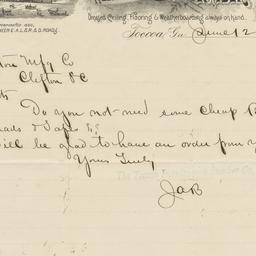 Dressed Ceiling, Flooring & Weatherboarding always on hand.
Toccoa, Ga. June 12
Mfg Co
Clifton SC
Do you not need some cheap
& Tapes
will be glad to have an order from
Yours Truly
JAB